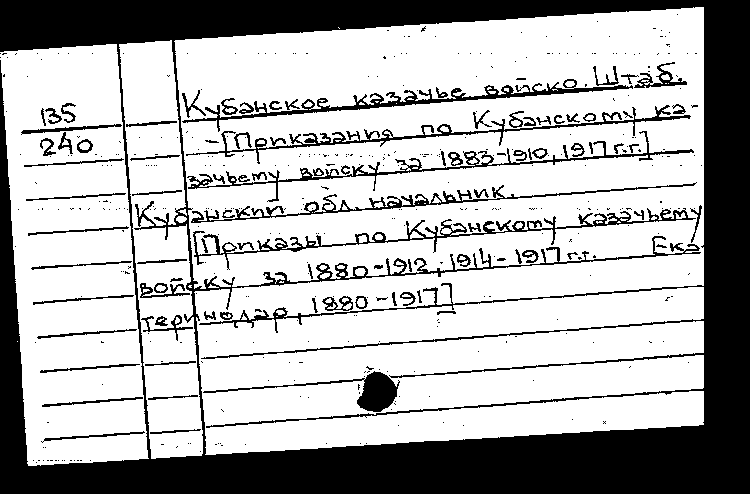 135
240
Кубанское казачье войско. Штаб.
-[Приказания по Кубанскому ка-
зачьему войску за 1883-1910, 1917 г.г.]
Кубанский обл. начальник.
[Приказы по Кубанскому казачьему
войску за 1880-1912, 1914-1917 г.г. Ека-
теринодар, 1880-1917]